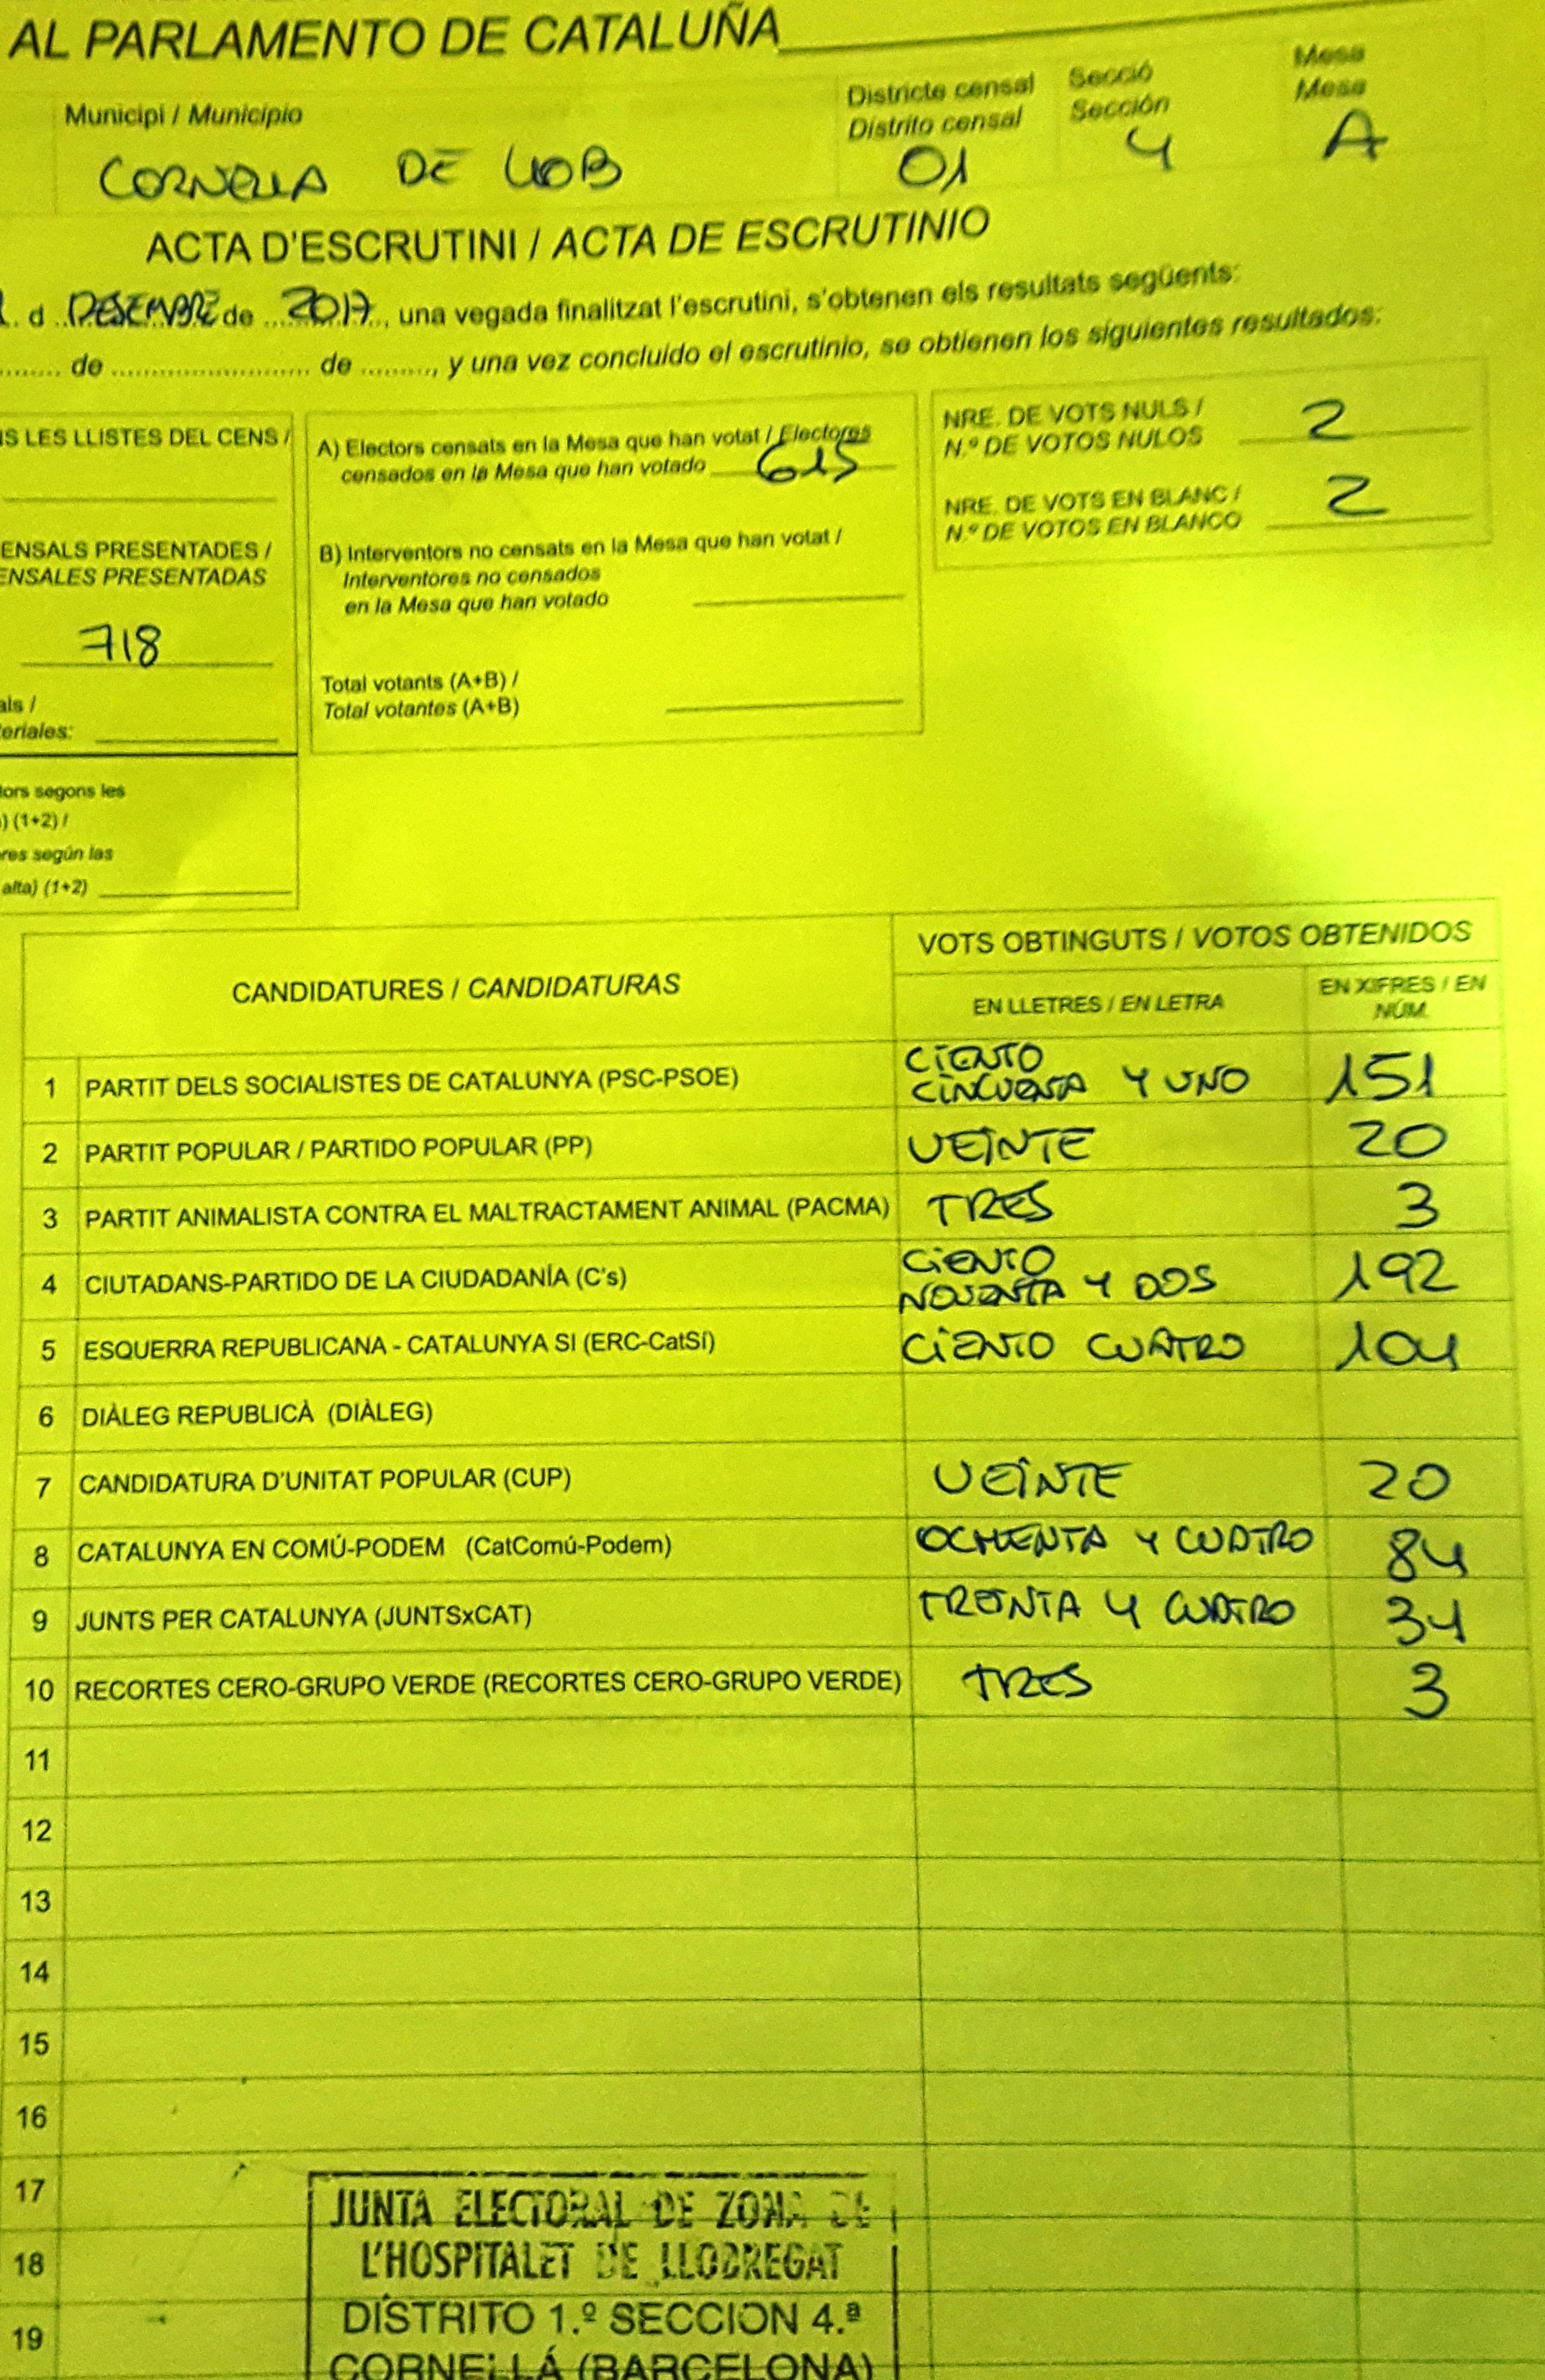 AL PARLAMENTO DE CATALUÑA
Municipi / Municipio
Districte censal
Distrito censal
Secció
Sección
Mesa
Mesa
CORNELLA DE LLOB
01
4
A
ACTA D'ESCRUTINI / ACTA DE ESCRUTINIO
d DESEMBRE de 2017, una vegada finalitzat l'escrutini, s'obtenen els resultats següents:
de de , y una vez concluido el escrutinio, se obtienen los siguientes resultados:
LES LLISTES DEL CENS /
ENSALS PRESENTADES /
ENSALES PRESENTADAS
718
als /
eriales:
tors segons les
) (1+2) /
res según las
alta) (1+2)
A) Electors censats en la Mesa que han votat / Electores
censados en la Mesa que han votado 615
B) Interventors no censats en la Mesa que han votat /
Interventores no censados
en la Mesa que han votado
Total votants (A+B) /
Total votantes (A+B)
NRE. DE VOTS NULS /
N.º DE VOTOS NULOS 2
NRE. DE VOTS EN BLANC /
N.º DE VOTOS EN BLANCO 2
CANDIDATURES / CANDIDATURAS
VOTS OBTINGUTS / VOTOS OBTENIDOS
EN LLETRES / EN LETRA
EN XIFRES / EN
NÚM.
1 PARTIT DELS SOCIALISTES DE CATALUNYA (PSC-PSOE) CIENTO
CINCUENTA Y UNO 151
2 PARTIT POPULAR / PARTIDO POPULAR (PP) VEINTE 20
3 PARTIT ANIMALISTA CONTRA EL MALTRACTAMENT ANIMAL (PACMA) TRES 3
4 CIUTADANS-PARTIDO DE LA CIUDADANÍA (C's) CIENTO
NOVENTA Y DOS 192
5 ESQUERRA REPUBLICANA - CATALUNYA SI (ERC-CatSí) CIENTO CUATRO 104
6 DIÀLEG REPUBLICÀ (DIÀLEG)
7 CANDIDATURA D'UNITAT POPULAR (CUP) VEINTE 20
8 CATALUNYA EN COMÚ-PODEM (CatComú-Podem) OCHENTA Y CUATRO 84
9 JUNTS PER CATALUNYA (JUNTSxCAT) TREINTA Y CUATRO 34
10 RECORTES CERO-GRUPO VERDE (RECORTES CERO-GRUPO VERDE) TRES 3
11
12
13
14
15
16
17
18
19
JUNTA ELECTORAL DE ZONA DE
L'HOSPITALET DE LLOBREGAT
DISTRITO 1.º SECCION 4.ª
CORNELLÁ (BARCELONA)